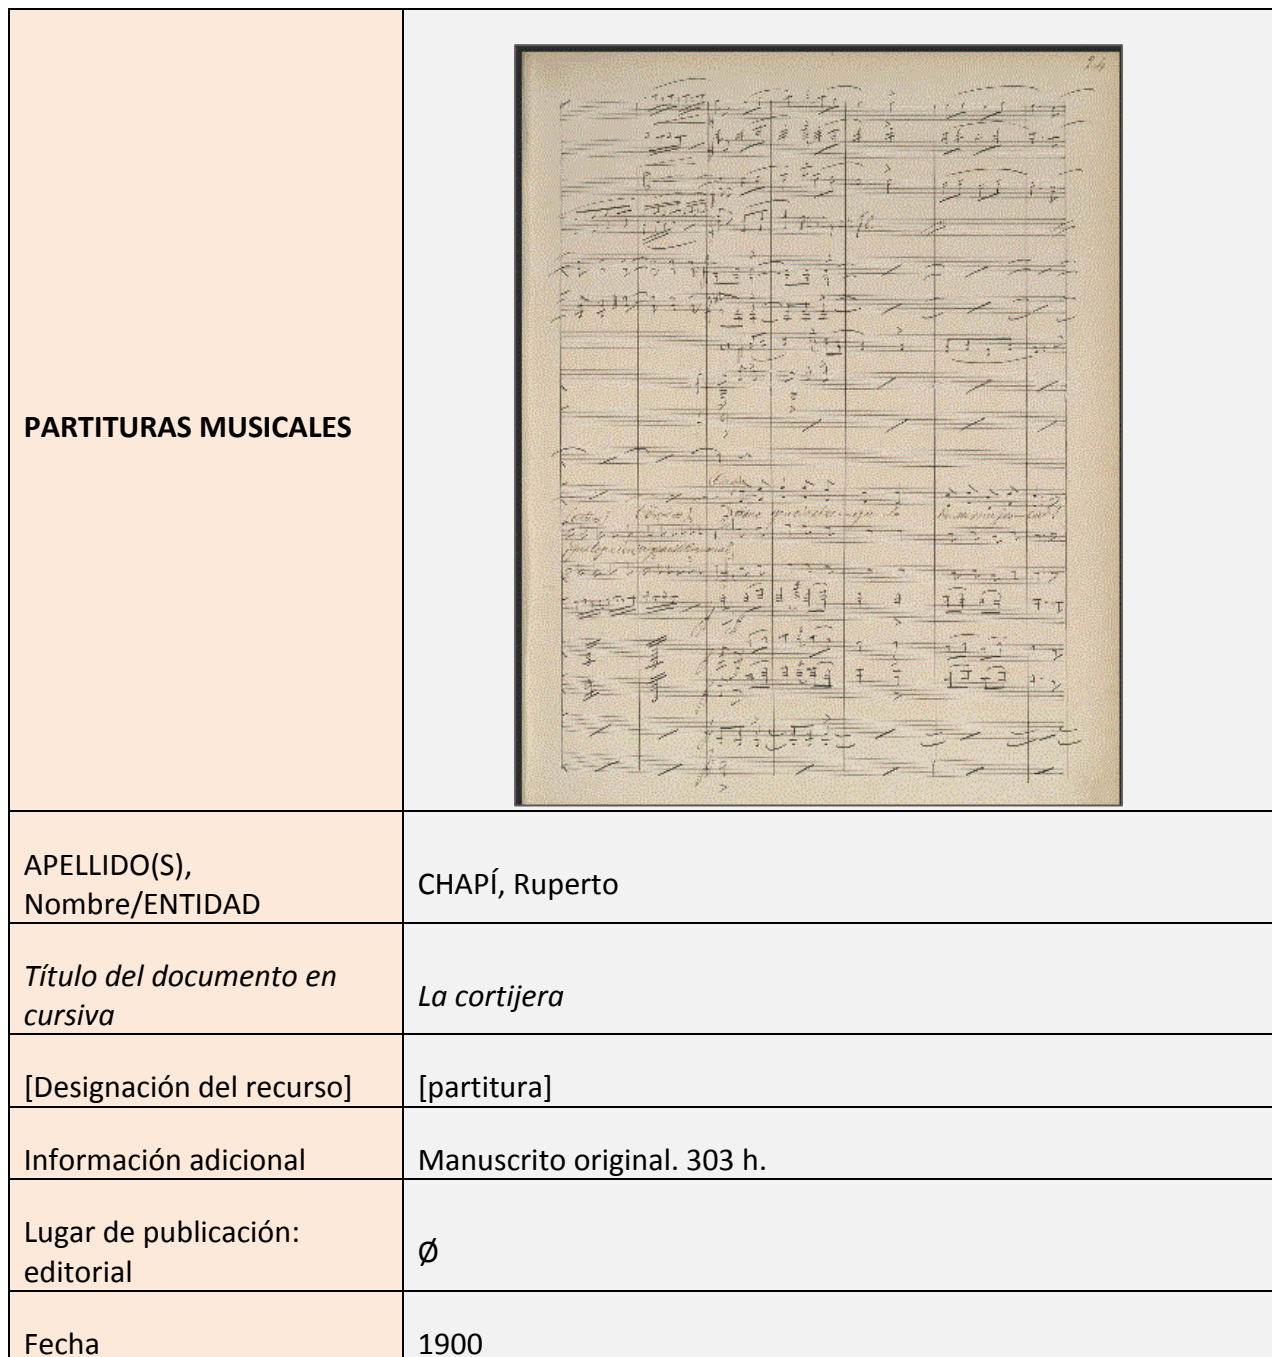 24
PARTITURAS MUSICALES
APELLIDO(S),
Nombre/ENTIDAD
CHAPÍ, Ruperto
Título del documento en
cursiva
La cortijera
[Designación del recurso]
[partitura]
Información adicional
Manuscrito original. 303 h.
Lugar de publicación:
editorial
Ø
Fecha
1900